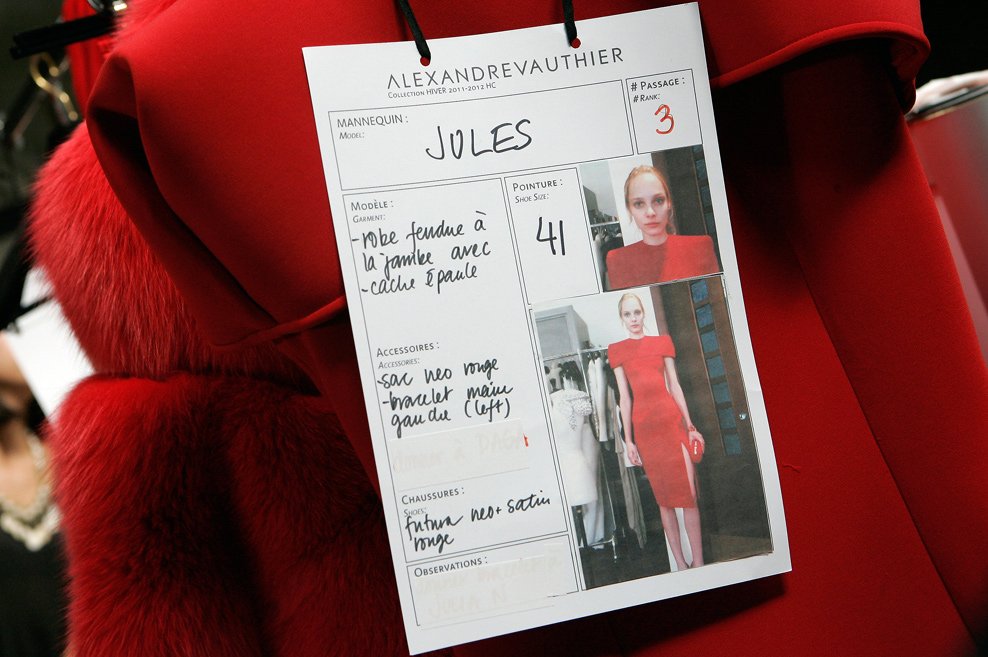 ALEXANDREVAUTHIER
Collection HIVER 2011-2012 HC
MANNEQUIN :
Model:
JULES
# Passage :
# Rank:
3
Modèle :
Garment:
-robe fendue à
la jambe avec
-cache épaule
Pointure :
Shoe Size:
41
Accessoires :
Accessories:
-sac neo rouge
-bracelet main
gauche (left)
Chaussures :
Shoes:
futura neo+satin
rouge
Observations :
JULIA N